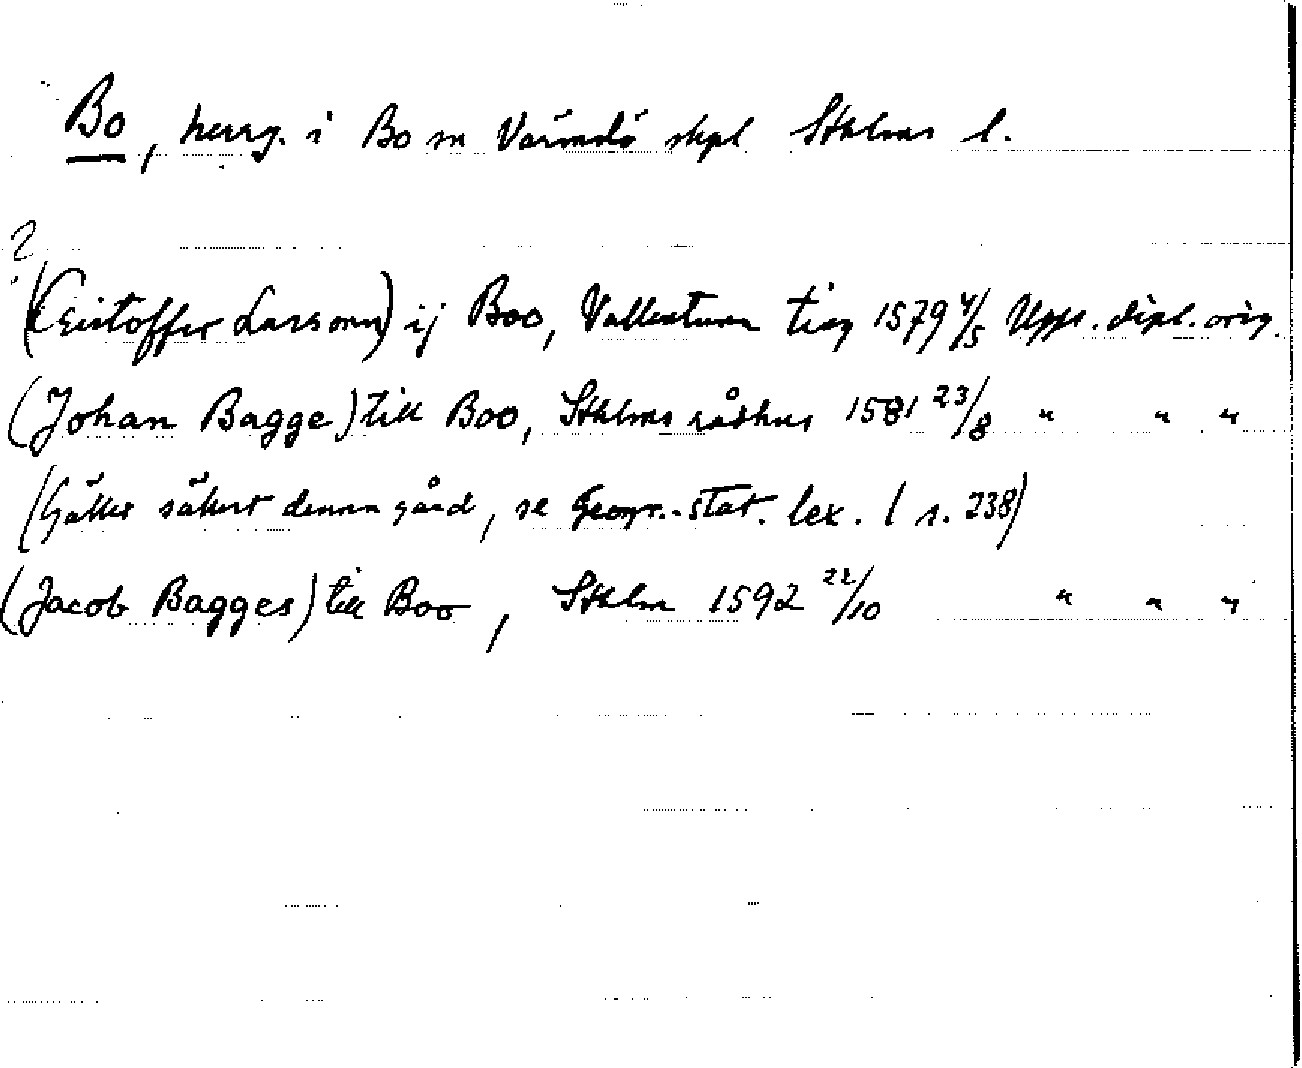 Bo, herrg. i Bo sn Värmdö skpl Sthlms l.
?
(Cristoffer Larsonn) ij Boo, Vallentuna ting 1579 4/5 Upps. dipl. orig.
(Johan Bagge) till Boo, Sthlms rådhus 1581 23/8 " " "
(Gäller säkert denna gård, se Geogr.-stat. lex. 1 s. 238)
(Jacob Bagges) till Boo, Sthlm 1592 22/10 " " "